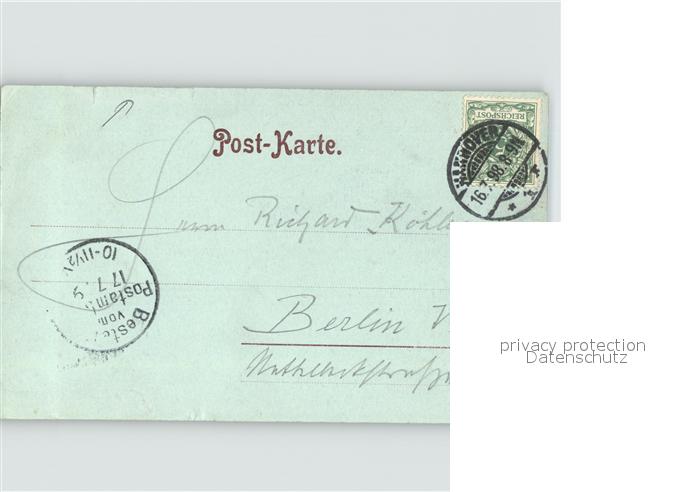 REICHSPOST
Post-Karte.
HANNOVER 1
16.7.98.8-9N.
Herrn Richard Köhl
Bestellt
vom
Postamte 9
17.7.
10-11½V.
Berlin W
privacy protection
Datenschutz